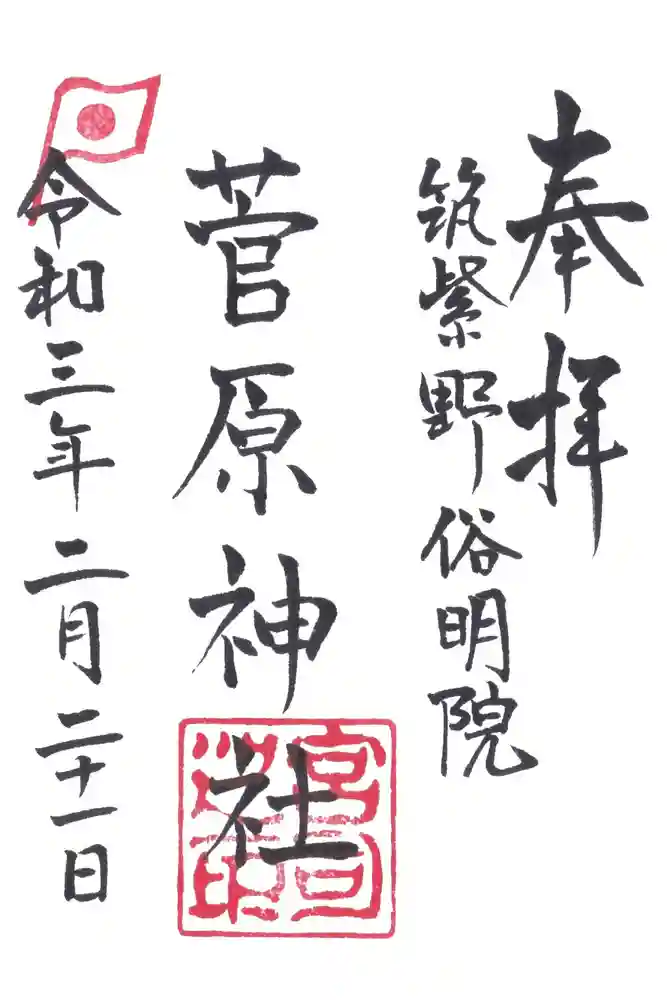 奉拝
筑紫野俗明院
菅原神社
宮司之印
令和三年二月二十一日